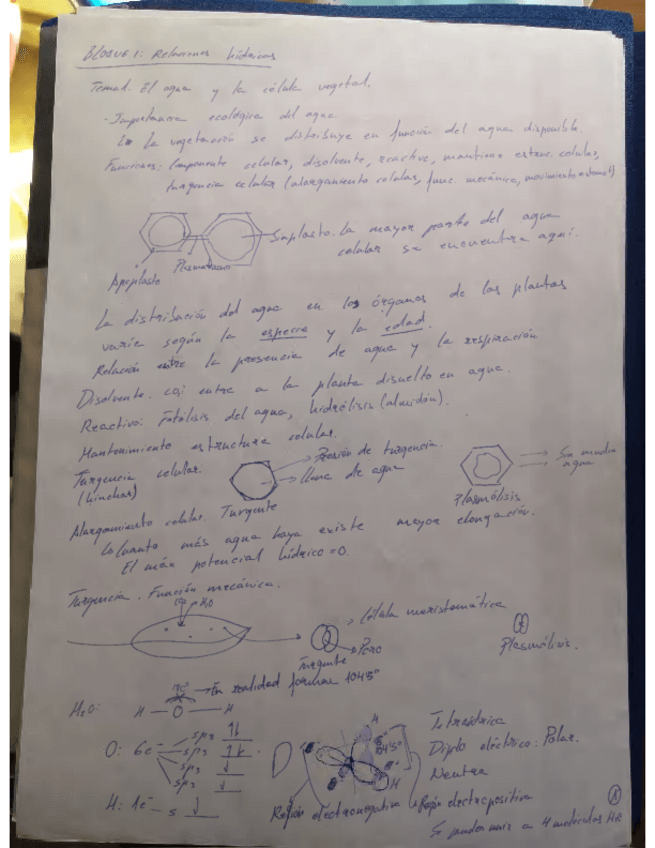 BLOQUE 1: Relaciones hídricas
Tema 1. El agua y la célula vegetal.
- Importancia ecológica del agua
↳ La vegetación se distribuye en función del agua disponible.
Funciones: Componente celular, disolvente, reactivo, mantiene estruc. celular,
turgencia celular (alargamiento celular, func. mecánica, movimiento
Simplasto. La mayor parte del agua
celular se encuentra aquí.
Apoplasto
La distribución del agua en los órganos de las plantas
varía según la especie y la edad.
Relación entre la presencia de agua y la respiración
Disolvente. entre a la planta disuelto en agua.
Reactivo: Fotólisis del agua, hidrólisis (almidón).
Mantenimiento estructura celular.
Turgencia celular.
(hinchar)
Presión de turgencia.
llena de agua
Turgente
Sin mucha
agua
Plasmólisis
Alargamiento celular.
↳ Cuanto más agua haya existe mayor elongación.
El máx potencial hídrico = 0.
Turgencia. Función mecánica.
H₂O
Célula meristemática
Poro
Turgente
Plasmólisis.
En realidad forman 104'5°
H₂O: H — O — H
O: 6e⁻
sp3 ↑↓
sp3 ↑↓
sp3 ↓
sp3 ↓
H: 1e⁻ s ↓
H
104'5°
H
Región electronegativa
Región electropositiva
Tetraédrica
Dipolo eléctrico: Polar.
Neutra
a 4 moléculas
1